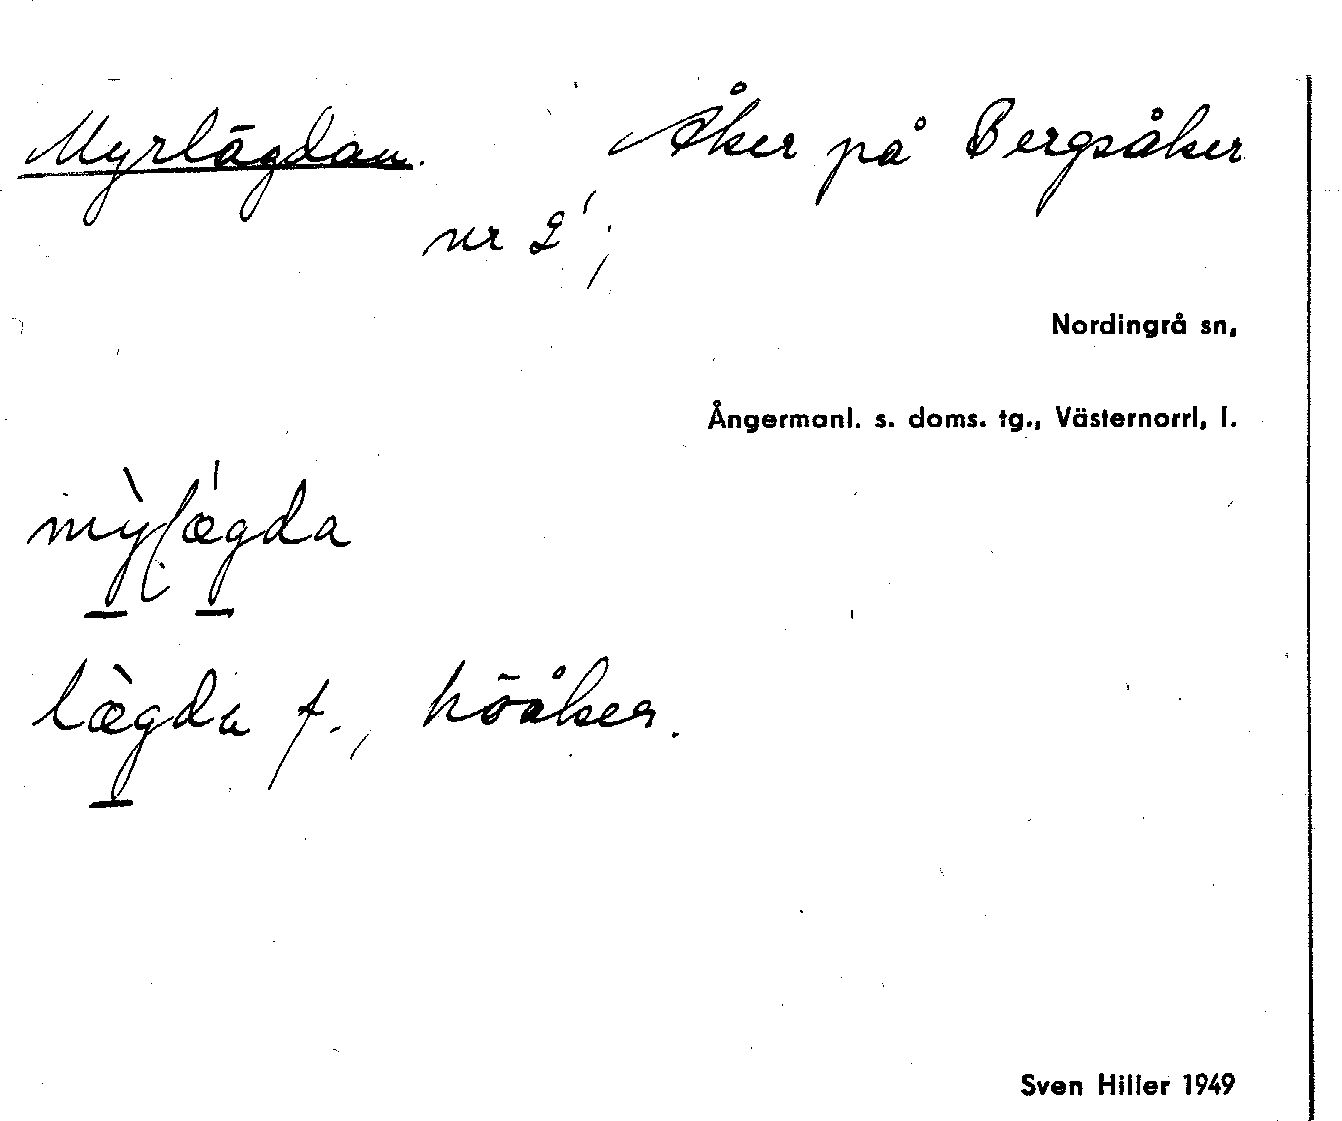 Myrlägdan. Åker på Bergsåker
nr 2¹;
Nordingrå sn,
Ångermanl. s. doms. tg., Västernorrl, l.
lægda f., höåker.
Sven Hiller 1949